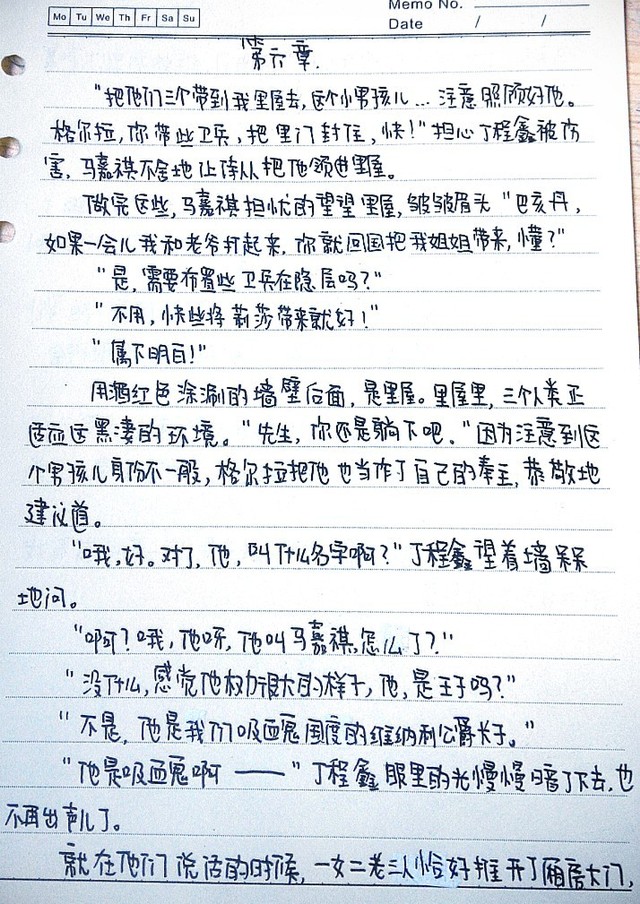 Mo Tu We Th Fr Sa Su
Memo No.
Date / /
第六章.
“把他们三个带到我里屋去,这个小男孩儿...注意照顾好他。
格尔拉,你带些卫兵,把里门封住,快!”担心丁程鑫被伤
害,马嘉祺不舍地让侍从把他领进里屋。
做完这些,马嘉祺担忧的望望里屋,皱皱眉头“巴亥丹,
如果一会儿我和老爷打起来,你就回国把我姐姐带来,懂?”
“是,需要布置些卫兵在隐层吗?”
“不用,快些将莉莎带来就好!”
“属下明白!”
用酒红色涂涮的墙壁后面,是里屋。里屋里,三个人类正
适应这黑凄的环境。“先生,你还是躺下吧。”因为注意到这
个男孩儿身份不一般,格尔拉把他也当作了自己的奉主,恭敬地
建议道。
“哦,好。对了,他,叫什么名字啊?”丁程鑫望着墙呆呆
地问。
“啊?哦,他呀,他叫马嘉祺,怎么了?”
“没什么,感觉他权力很大的样子,他,是王子吗?”
“不是,他是我们吸血鬼国度的维纳利公爵长子。”
“他是吸血鬼啊——”丁程鑫眼里的光慢慢暗了下去,也
不再出声儿了。
就在他们说话的时候,一女二老三人恰好推开了厢房大门,